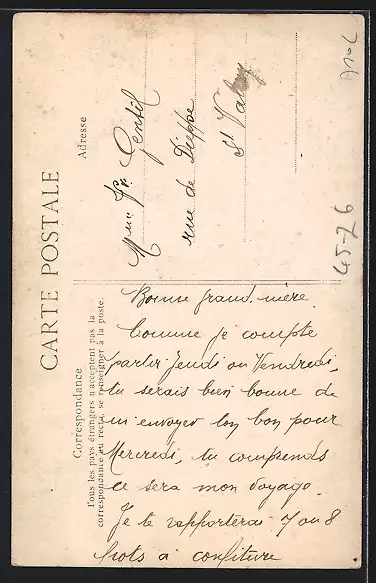 CARTE POSTALE
Correspondance
Tous les pays étrangers n'acceptent pas la
correspondance au recto, se renseigner à la poste.
Adresse
Mme Vve Gentil
rue de Dieppe
St Valery
45-76
Bonne grand-mère.
Comme je compte
partir Jeudi ou Vendredi,
tu serais bien bonne de
m'envoyer ton bon pour
Mercredi, tu comprends
ce sera mon voyage.
Je te rapporterai 7 ou 8
pots à confiture